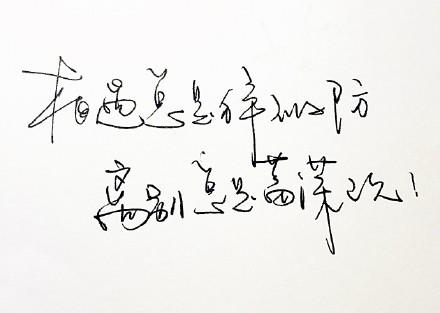 相遇总是猝不及防
离别总是蓄谋已久!